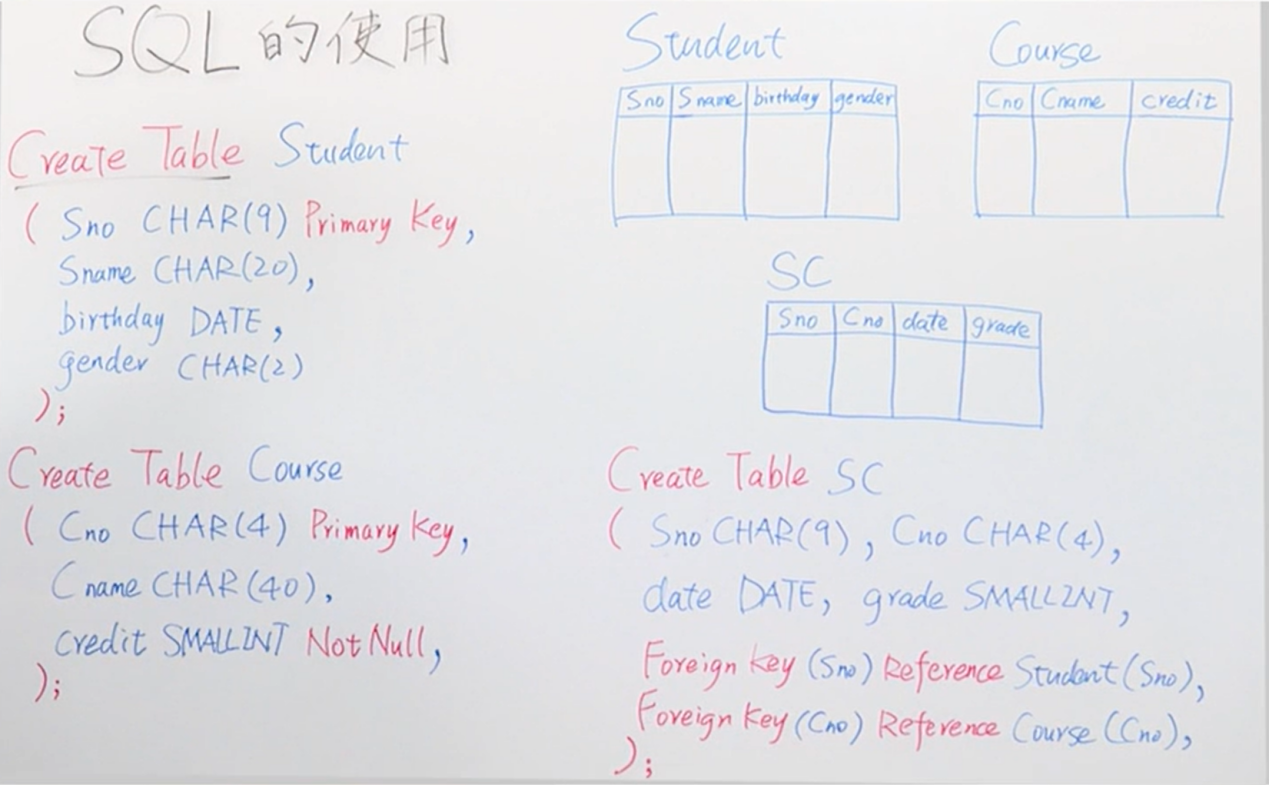 SQL 的使用
Create Table Student
( Sno CHAR(9) Primary Key,
Sname CHAR(20),
birthday DATE,
gender CHAR(2)
);
Create Table Course
( Cno CHAR(4) Primary Key,
Cname CHAR(40),
credit SMALLINT Not Null,
);
Student
Sno Sname birthday gender
Course
Cno Cname credit
SC
Sno Cno date grade
Create Table SC
( Sno CHAR(9), Cno CHAR(4),
date DATE, grade SMALLINT,
Foreign Key (Sno) Reference Student (Sno),
Foreign Key (Cno) Reference Course (Cno),
);